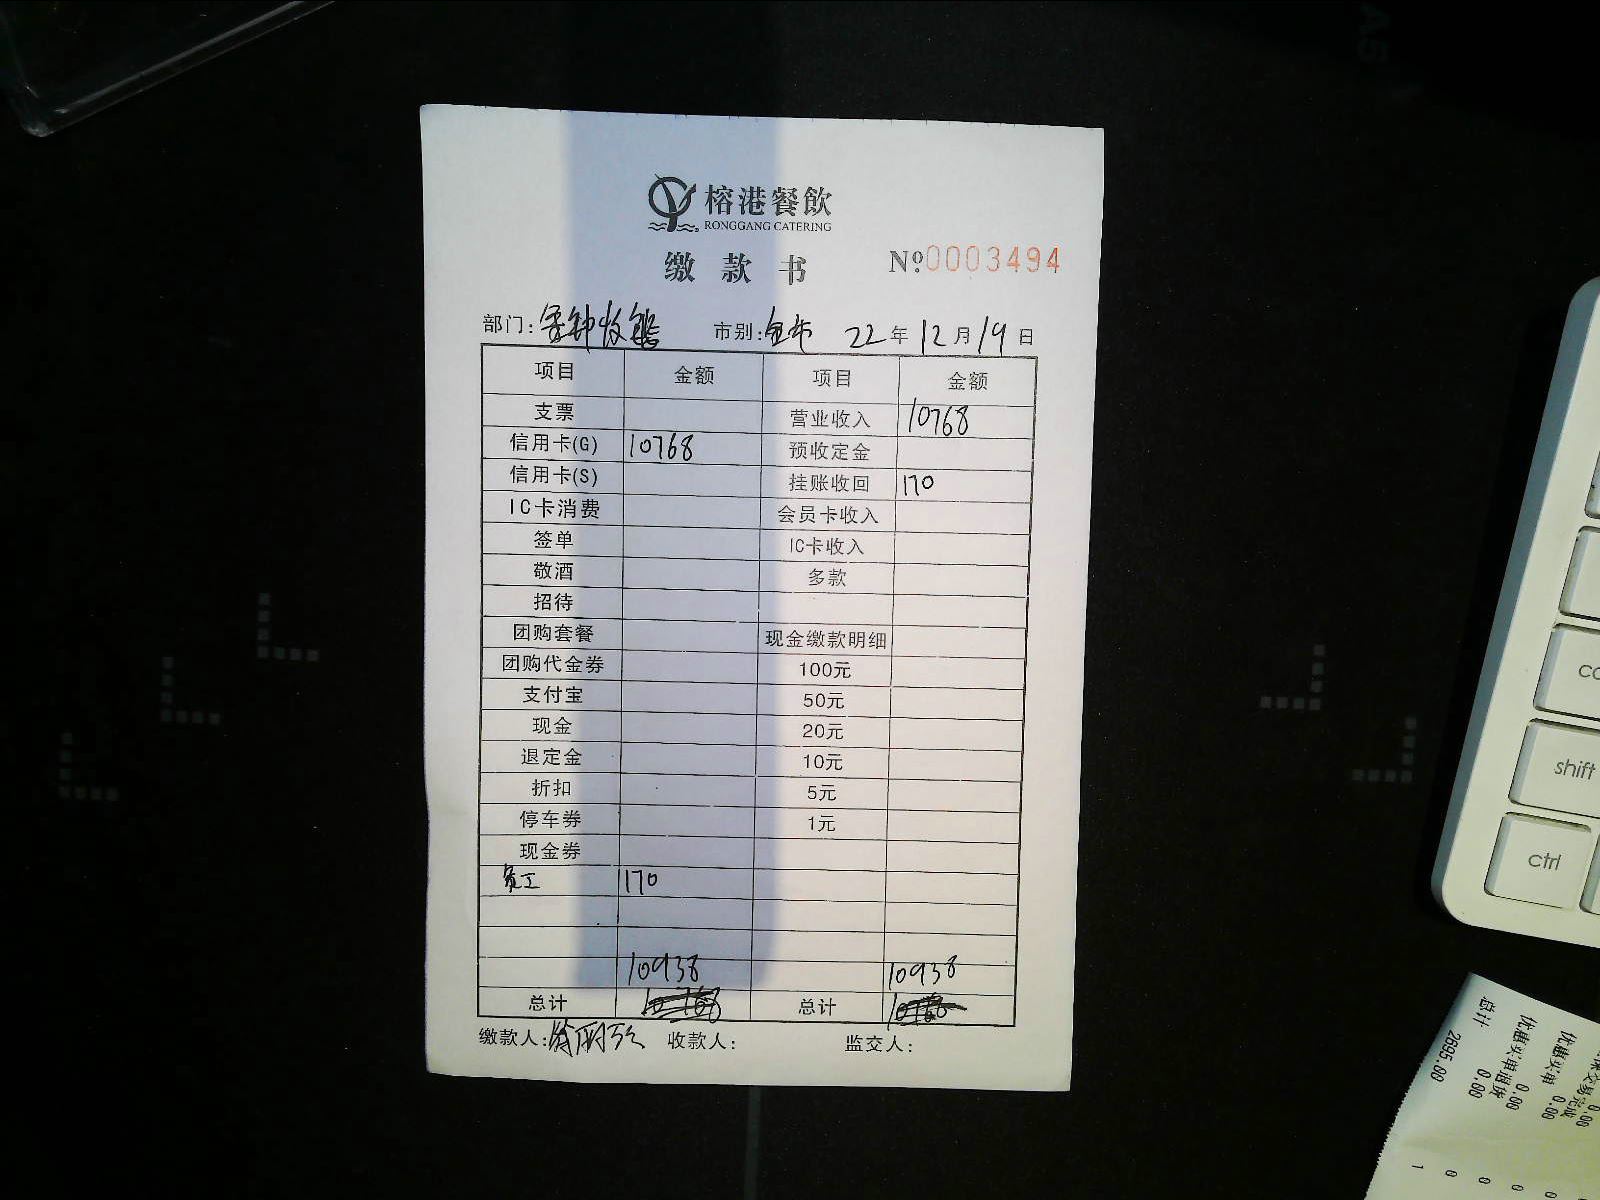 榕港餐飲
RONGGANG CATERING
缴款书 №0003494
部门: 市别:全市 22年12月19日
项目 金额 项目 金额
支票 营业收入 10768
信用卡(G) 10768 预收定金
信用卡(S) 挂账收回 170
IC卡消费 会员卡收入
签单 IC卡收入
敬酒 多款
招待
团购套餐 现金缴款明细
团购代金券 100元
支付宝 50元
现金 20元
退定金 10元
折扣 5元
停车券 1元
现金券
员工 170
10938 10938
总计 10768 总计 10768
缴款人: 收款人: 监交人:
shift
ctrl
优惠买单 0.00
优惠买单退货 0.00
总计 2695.00